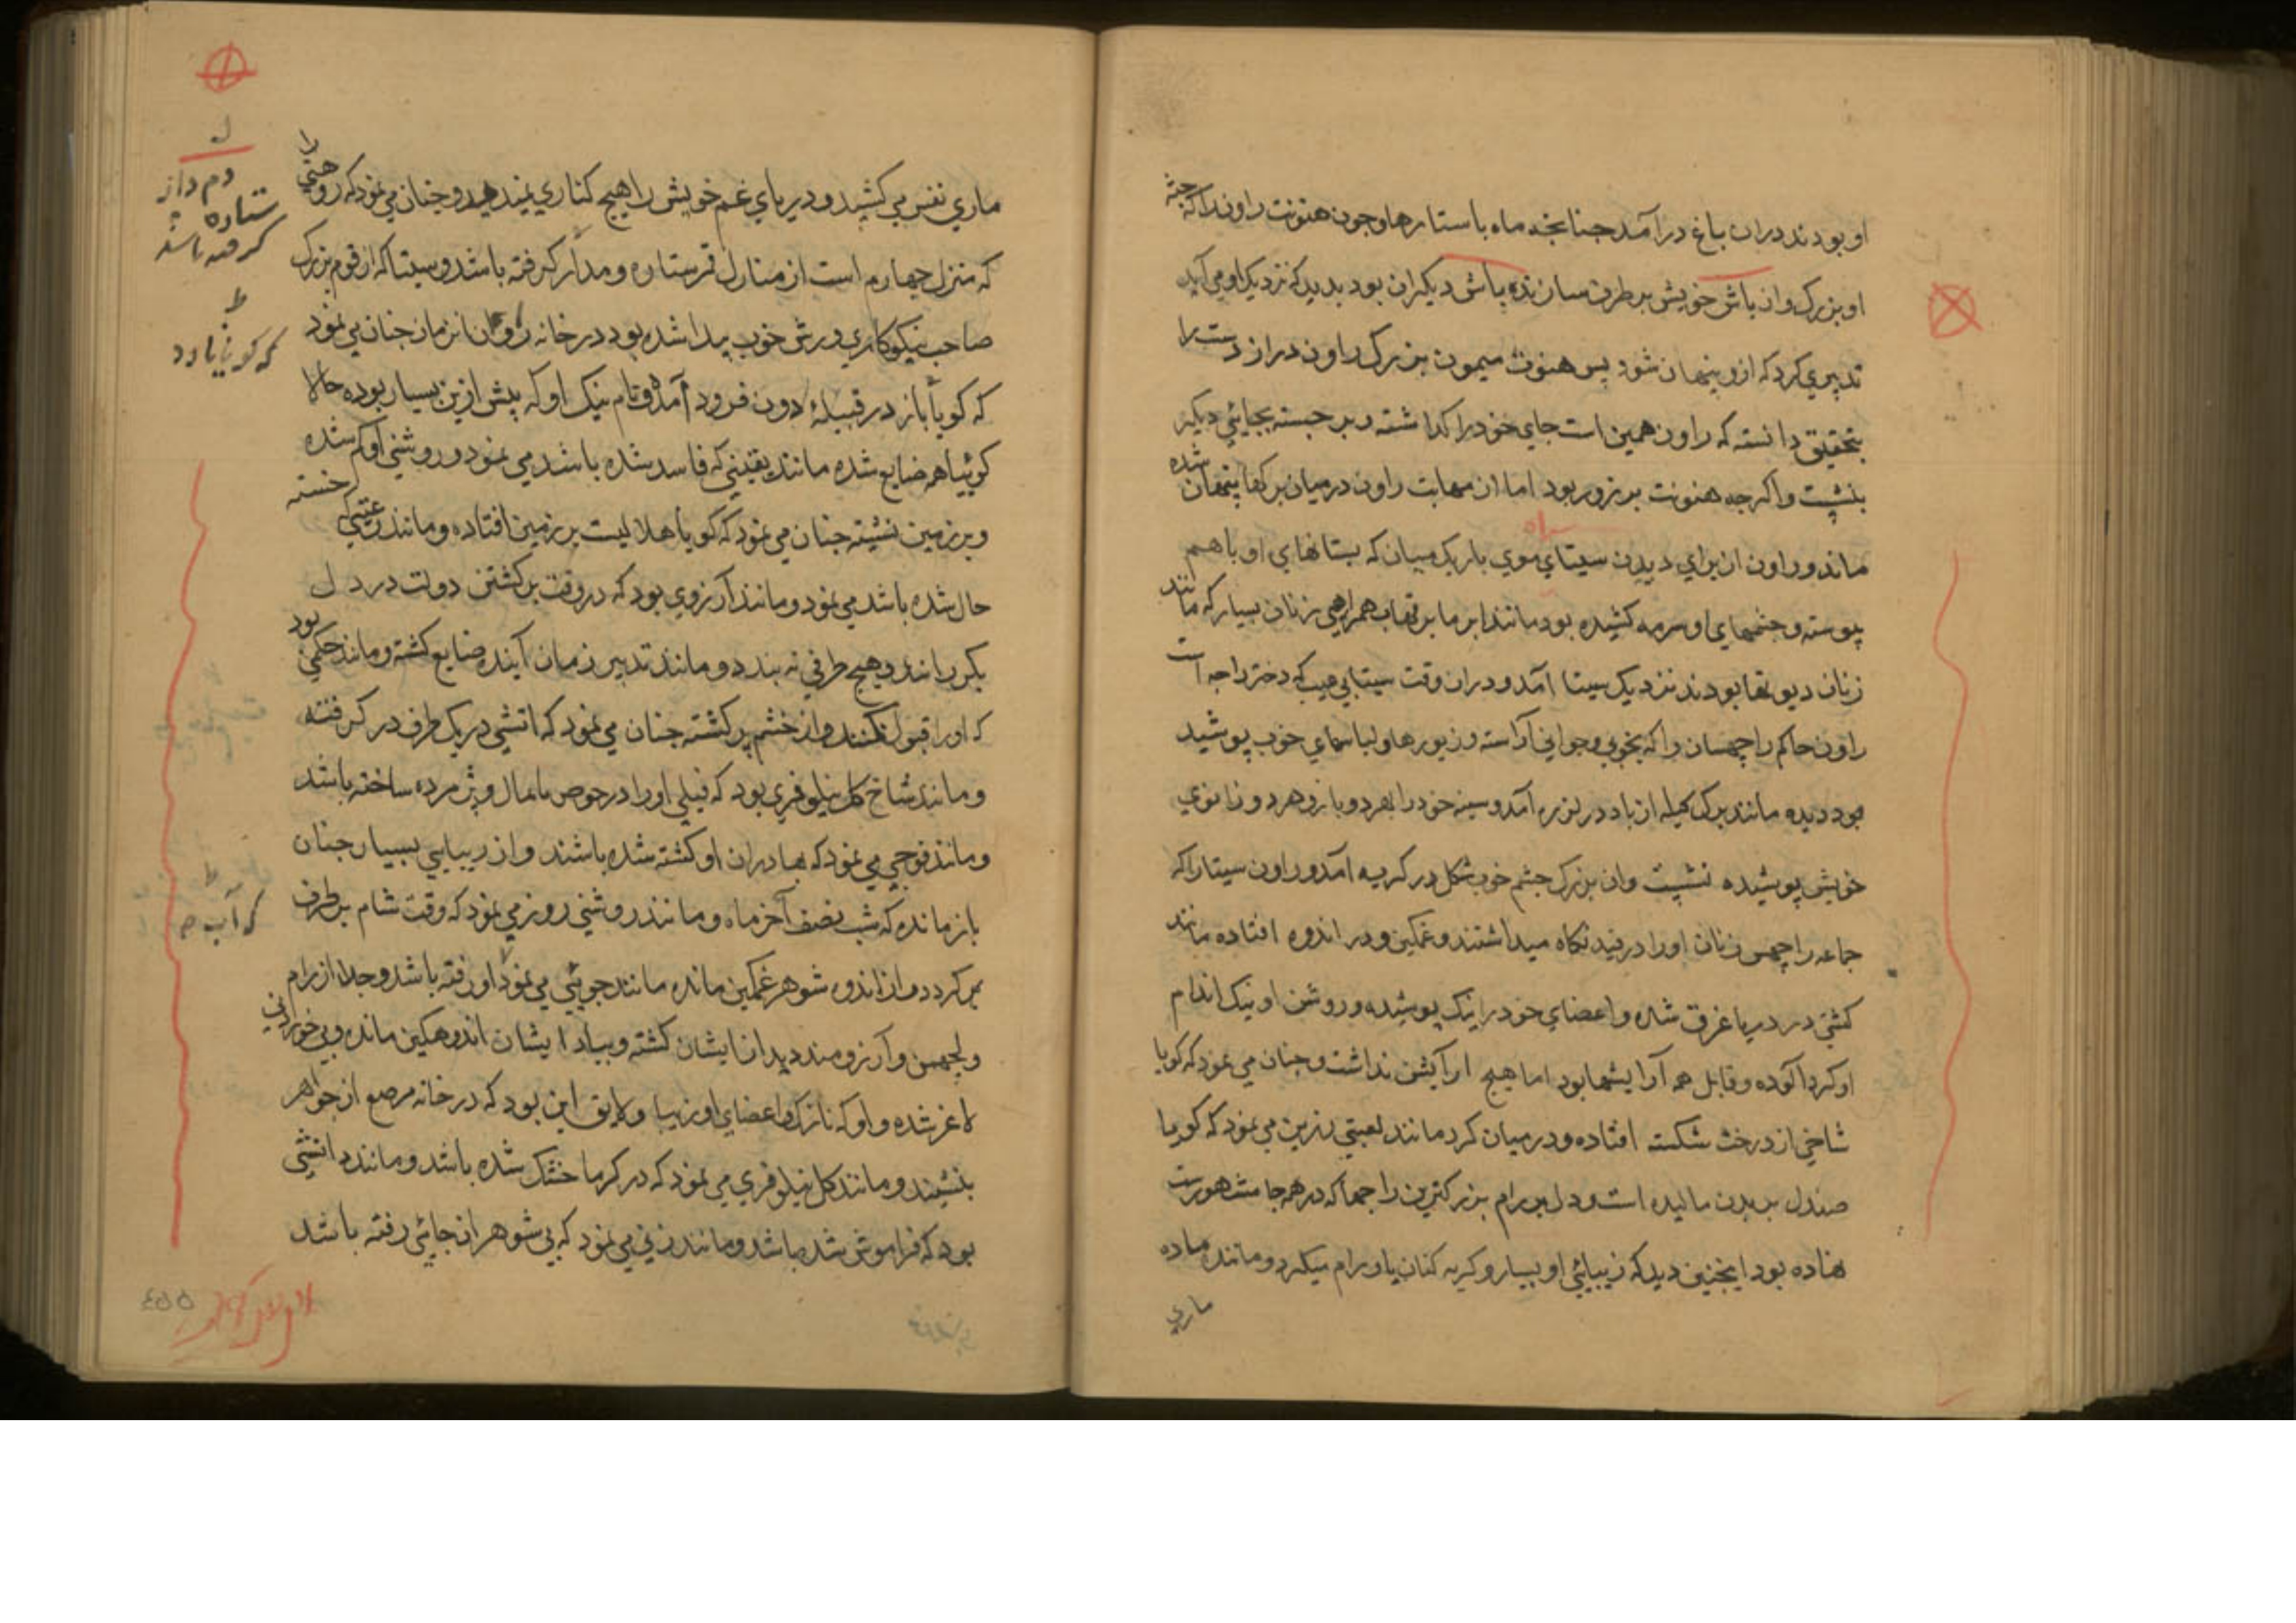 او بودند دران باغ درآمد چنانچه ماه با ستارها و چون هنونت راون را که جثه
او بزرگ و ان باش خویش بر طرف سازنده باش دیگران بود بدید که نزدیک او می آید
تدبیری کرد که ازو پنهان شود پس هنونت میمون بزرگ راون دراز دست را
بتحقیق دانسته که راون همین است جای خود را گذاشته و بر جسته بجائی دیگر
بنشست و اگرچه هنونت پر زور بود اما از مهابت راون درمیان برکها پنهان شده
ماند و راون از برای دیدن سیتای موی باریک میان که پستانهای او باهم
پیوسته و چشمهای او سرمه کشیده بود مانند ابر ما بر تهاب همراهی زنان بسیار که مانند
زنان دیوتها بودند نزدیک سیتا آمد و دران وقت سیتا بی عیب که دختر راجه است
راون حاکم راچهسان را که بخوبی و جوانی آراسته و زیورها و لباسهای خوب پوشید
بود دیده مانند برک کیله از باد در لرزه آمد و سینه خود را بهر دو بازو و هر دو زانوی
خویش پوشیده نشست و ان بزرک چشم خوب شکل در کریه آمد و راون سیتا را که
جماعه راچهس زنان او را در قید نکاه میداشتند و غمکین و در اندوه افتاده مانند
کشتی در دریا غرق شده و اعضای خود را نیک پوشیده و روشن او نیک اندام
او کرد آلوده و قابل همه آرایشها بود اما هیچ آرایش نداشت و چنان می نمود که کویا
شاخی از درخت شکسته افتاده و درمیان کرد مانند لعبتی زرین می نمود که کویا
صندل بر بدن مالیده است و دل بر رام بزرکترین راجها که در همه جا مشهورست
نهاده بود اینچنین دید که زیبائی او بسیار و کریه کنان یاد رام میکرد و مانند ماده
ماری
ماری نفس می کشید و دریای غم خویش را هیچ کناری نمیدید و چنان می نمود که روهنی را
که منزل چهارم است از منازل قمر ستاره دمدار کرفته باشد و سیتا که از قوم بزرک
صاحب نیکوکاری و رش خوب پیدا شده بود در خانه راون انزمان چنان می نمود
که کویا باز در قبیله دون فرود آمده و نام نیک او که پیش ازین بسیار بوده حالا
کوئیا همه ضایع شده مانند یقینی که فاسد شده باشد می نمود و روشنی او کم شده
و بر زمین نشسته چنان می نمود که کویا هلالیست بر زمین افتاده و مانند رعیتی که خسته
حال شده باشد می نمود و مانند آرزوی بود که در وقت برکشتن دولت در دل
بگردانند و هیچ طرفی نه بندد و مانند تدبیر زمان آینده ضایع کشته و مانند حکمی بود
که او را قبول نکنند و از خشم پر کشته چنان می نمود که اتشی در یک طرف در کرفته
و مانند شاخ کل نیلوفری بود که فیلی او را در حوض پامال و پژمرده ساخته باشد
و مانند فوجی می نمود که بهادران او کشته شده باشند و از زیبایی بسیار چنان
باز مانده که شب نصف آخر ماه و مانند روشنی روز می نمود که وقت شام بر طرف
می کردد و از اندوه شوهر غمکین مانده مانند جوئی می نمود او رفته باشد و جدا از رام
و لچهمن و آرزومند دیدار ایشان کشته و بیاد ایشان اندوهکین مانده و بی خورانی
لاغر شده و او که نازک و اعضای او زیبا و لایق این بود که در خانه مرصع از جواهر
بنشیند و مانند کل نیلوفری می نمود که در کرما خشک شده باشد و مانند دانشی
بود که فراموش شده باشد و مانند زنی می نمود که بی شوهر از جائی رفته باشد
دم دار
ستاره
کرفته باشد
که کویا
که آب